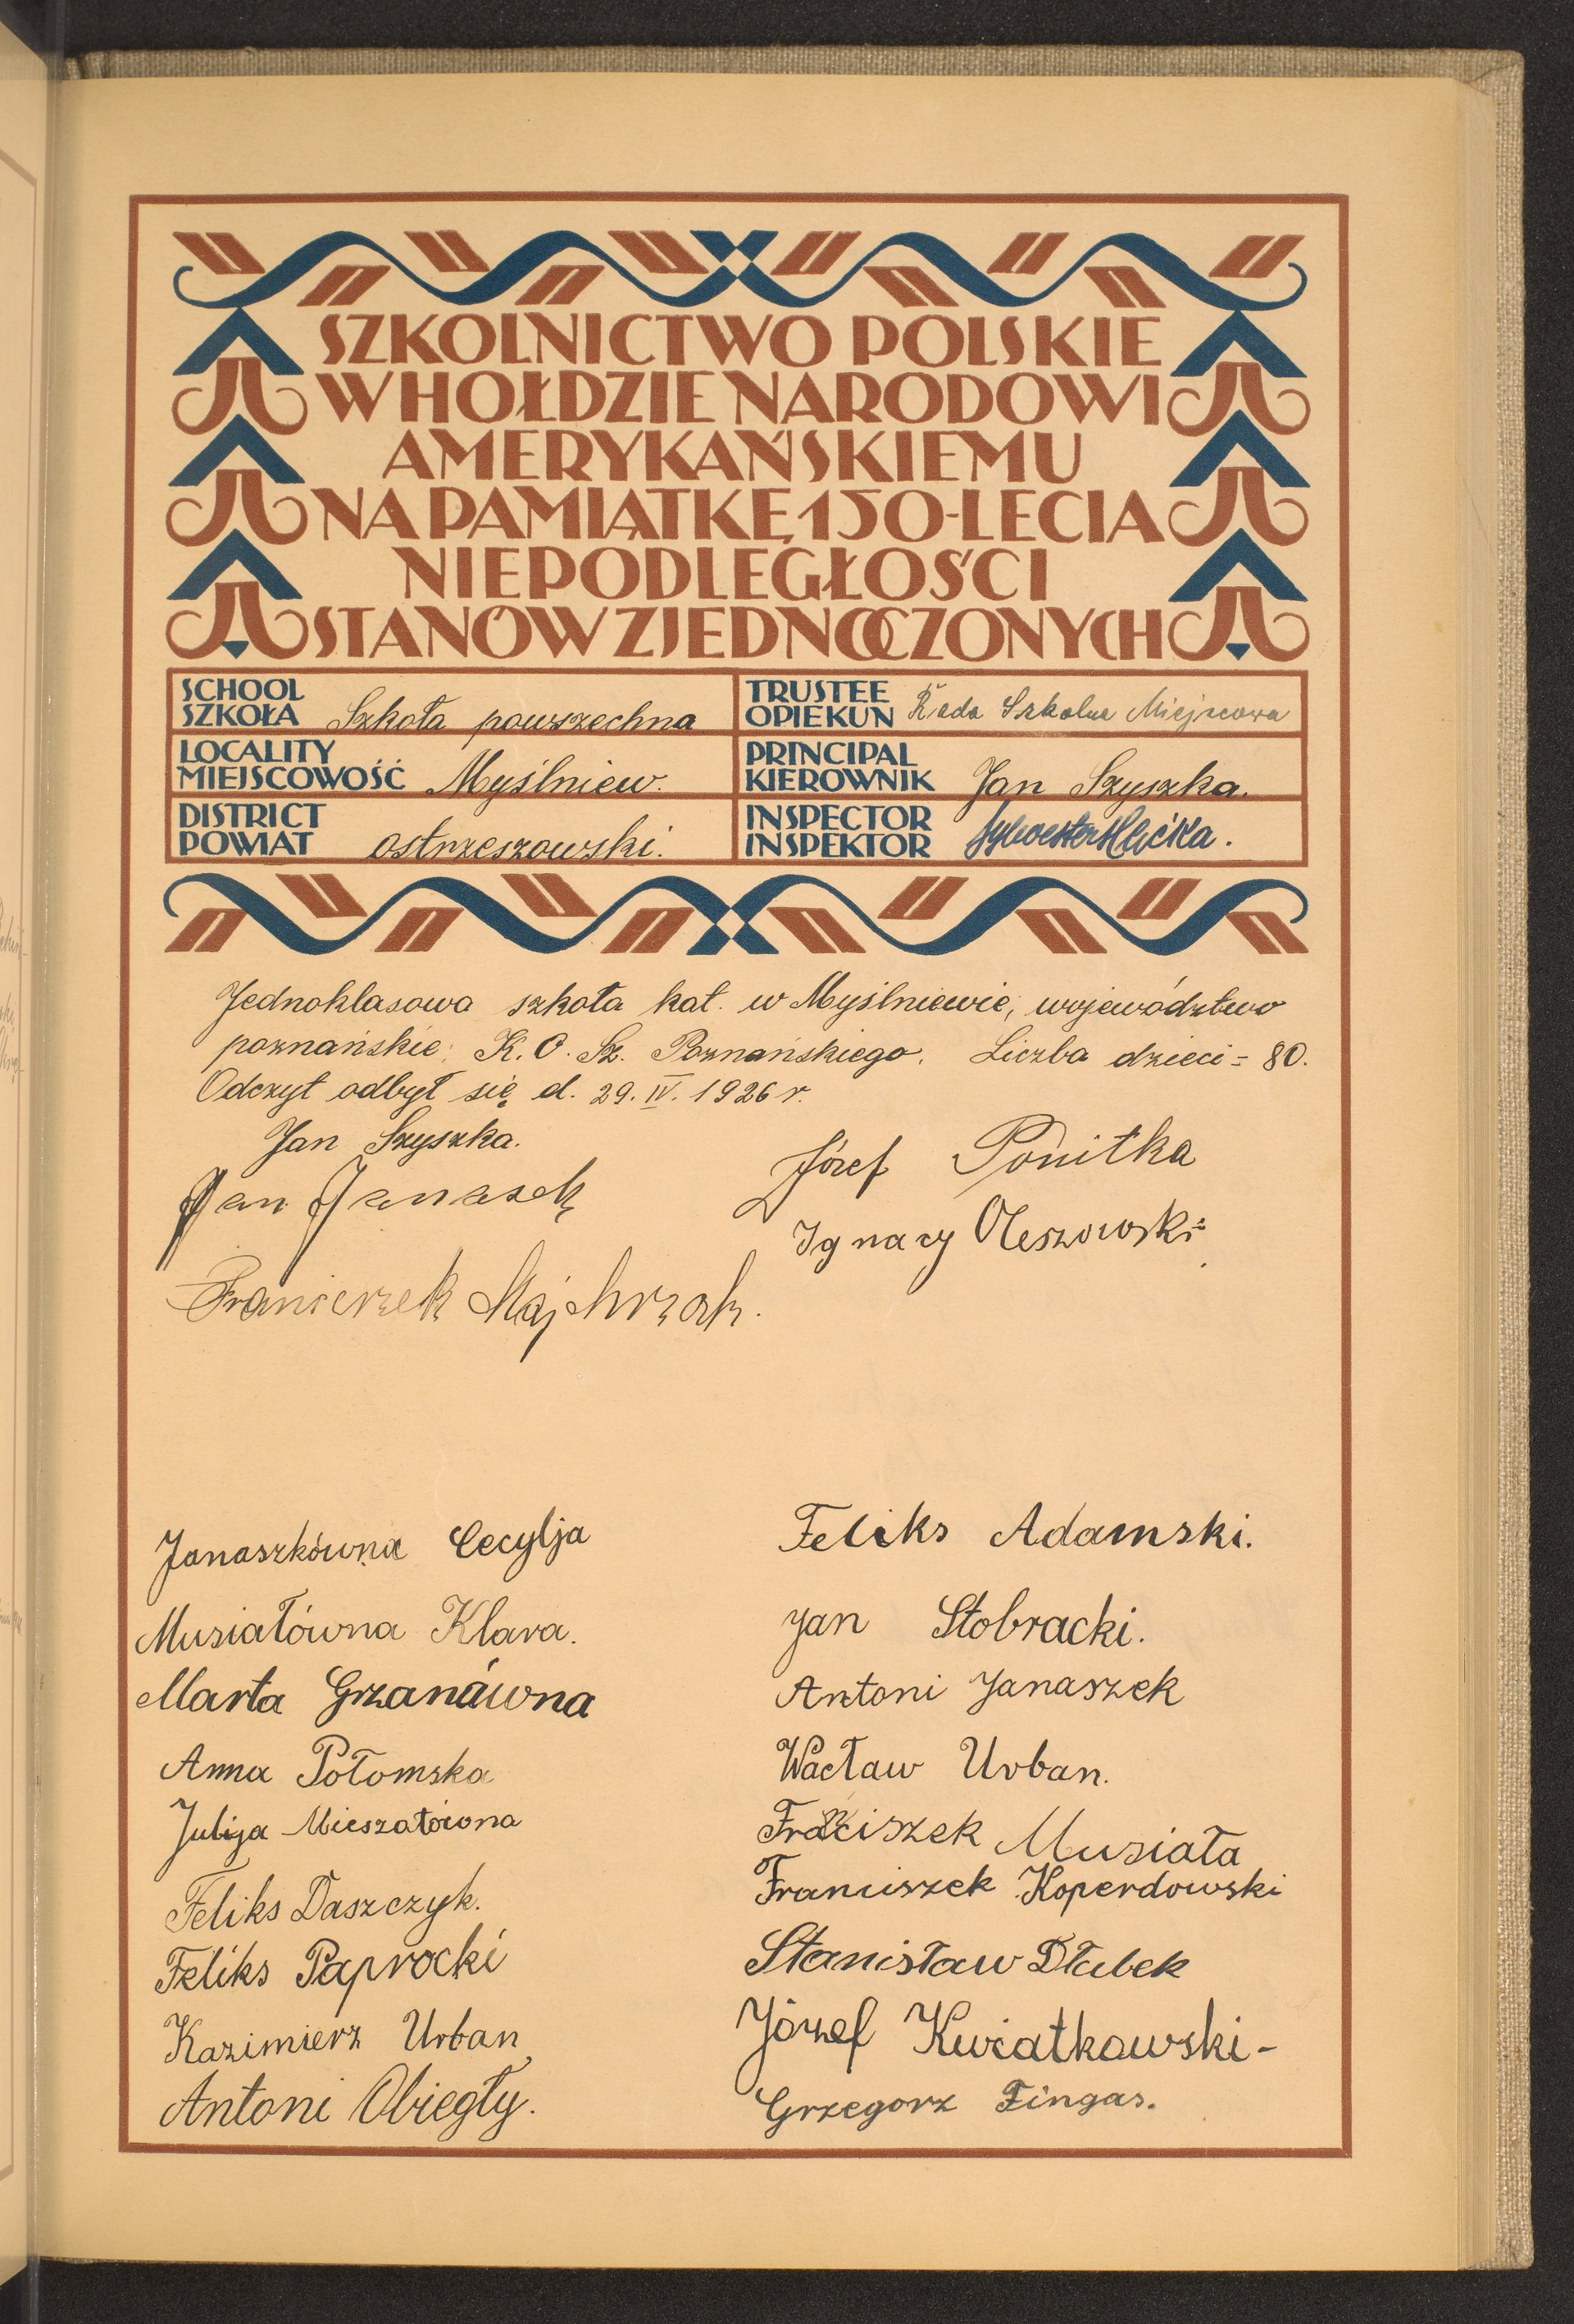 SZKOLNICTWO POLSKIE
W HOŁDZIE NARODOWI
AMERYKAŃSKIEMU
NA PAMIĄTKĘ 150-LECIA
NIEPODLEGŁOŚCI
STANÓW ZJEDNOCZONYCH
SCHOOL
SZKOŁA Szkoła powszechna
TRUSTEE
OPIEKUN Rada Szkolna Miejscowa
LOCALITY
MIEJSCOWOŚĆ Myślniew.
PRINCIPAL
KIEROWNIK Jan Szyszka.
DISTRICT
POWIAT ostrzeszowski.
INSPECTOR
INSPEKTOR Sylwester
Jednoklasowa szkoła kat. w Myślniewie, województwo
poznańskie; K. O. Sz. Poznańskiego. Liczba dzieci = 80.
Odczyt odbył się d. 29. IV. 1926 r.
Jan Szyszka.
Jan Janasek
Franciszek Majchrzak.
Józef Ponitka
Ignacy Oleszowski
Janaszkówna Cecylja
Musiałówna Klara.
Marta Grzanáwna
Anna Połomska
Julija Mieszałówna
Feliks Daszczyk.
Feliks Paprocki
Kazimierz Urban
Antoni Obiegły.
Feliks Adamski.
Jan Stobracki.
Antoni Janaszek
Wacław Urban.
Franciszek Musiała
Franciszek Koperdowski
Stanisław Dłubek
Józef Kwiatkowski-
Grzegorz Fingas.